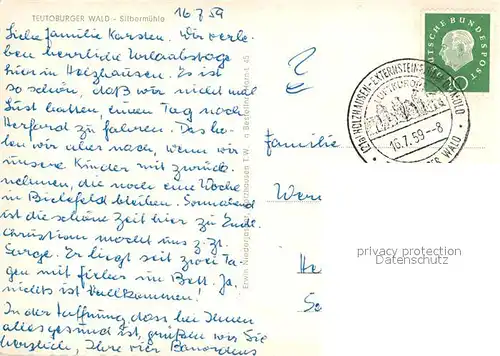 TEUTOBURGER WALD - Silbermühle
16.7.59
Liebe Familie Karsten. Wir verle-
ben herrliche Urlaubstage
hier in Holzhausen. Es ist
so schön, daß wir nicht mal
Lust hatten einen Tag nach
Herford zu fahren. Das ho-
len wir aber nach, wenn wir
unsere Kinder mit zurück
nehmen, die noch eine Woche
in Bielefeld bleiben. Sonnabend
ist die schöne Zeit hier zu Ende.
Christian macht uns z.Zt.
Sorge. Er liegt seit zwei Ta-
gen mit Fieber im Bett. Ja,
nichts ist vollkommen!
In der Hoffnung, dass bei Ihnen
alles gesund ist, grüßen wir Sie
herzlich, Ihre vier
Erwin Niedereichholz, Holzhausen T.W.
Familie
Were
He
DEUTSCHE BUNDESPOST
10
(21a) HOLZHAUSEN-EXTERNSTEINE
LUFTKURORT
16.7.59-8
WALD
privacy protection
Datenschutz